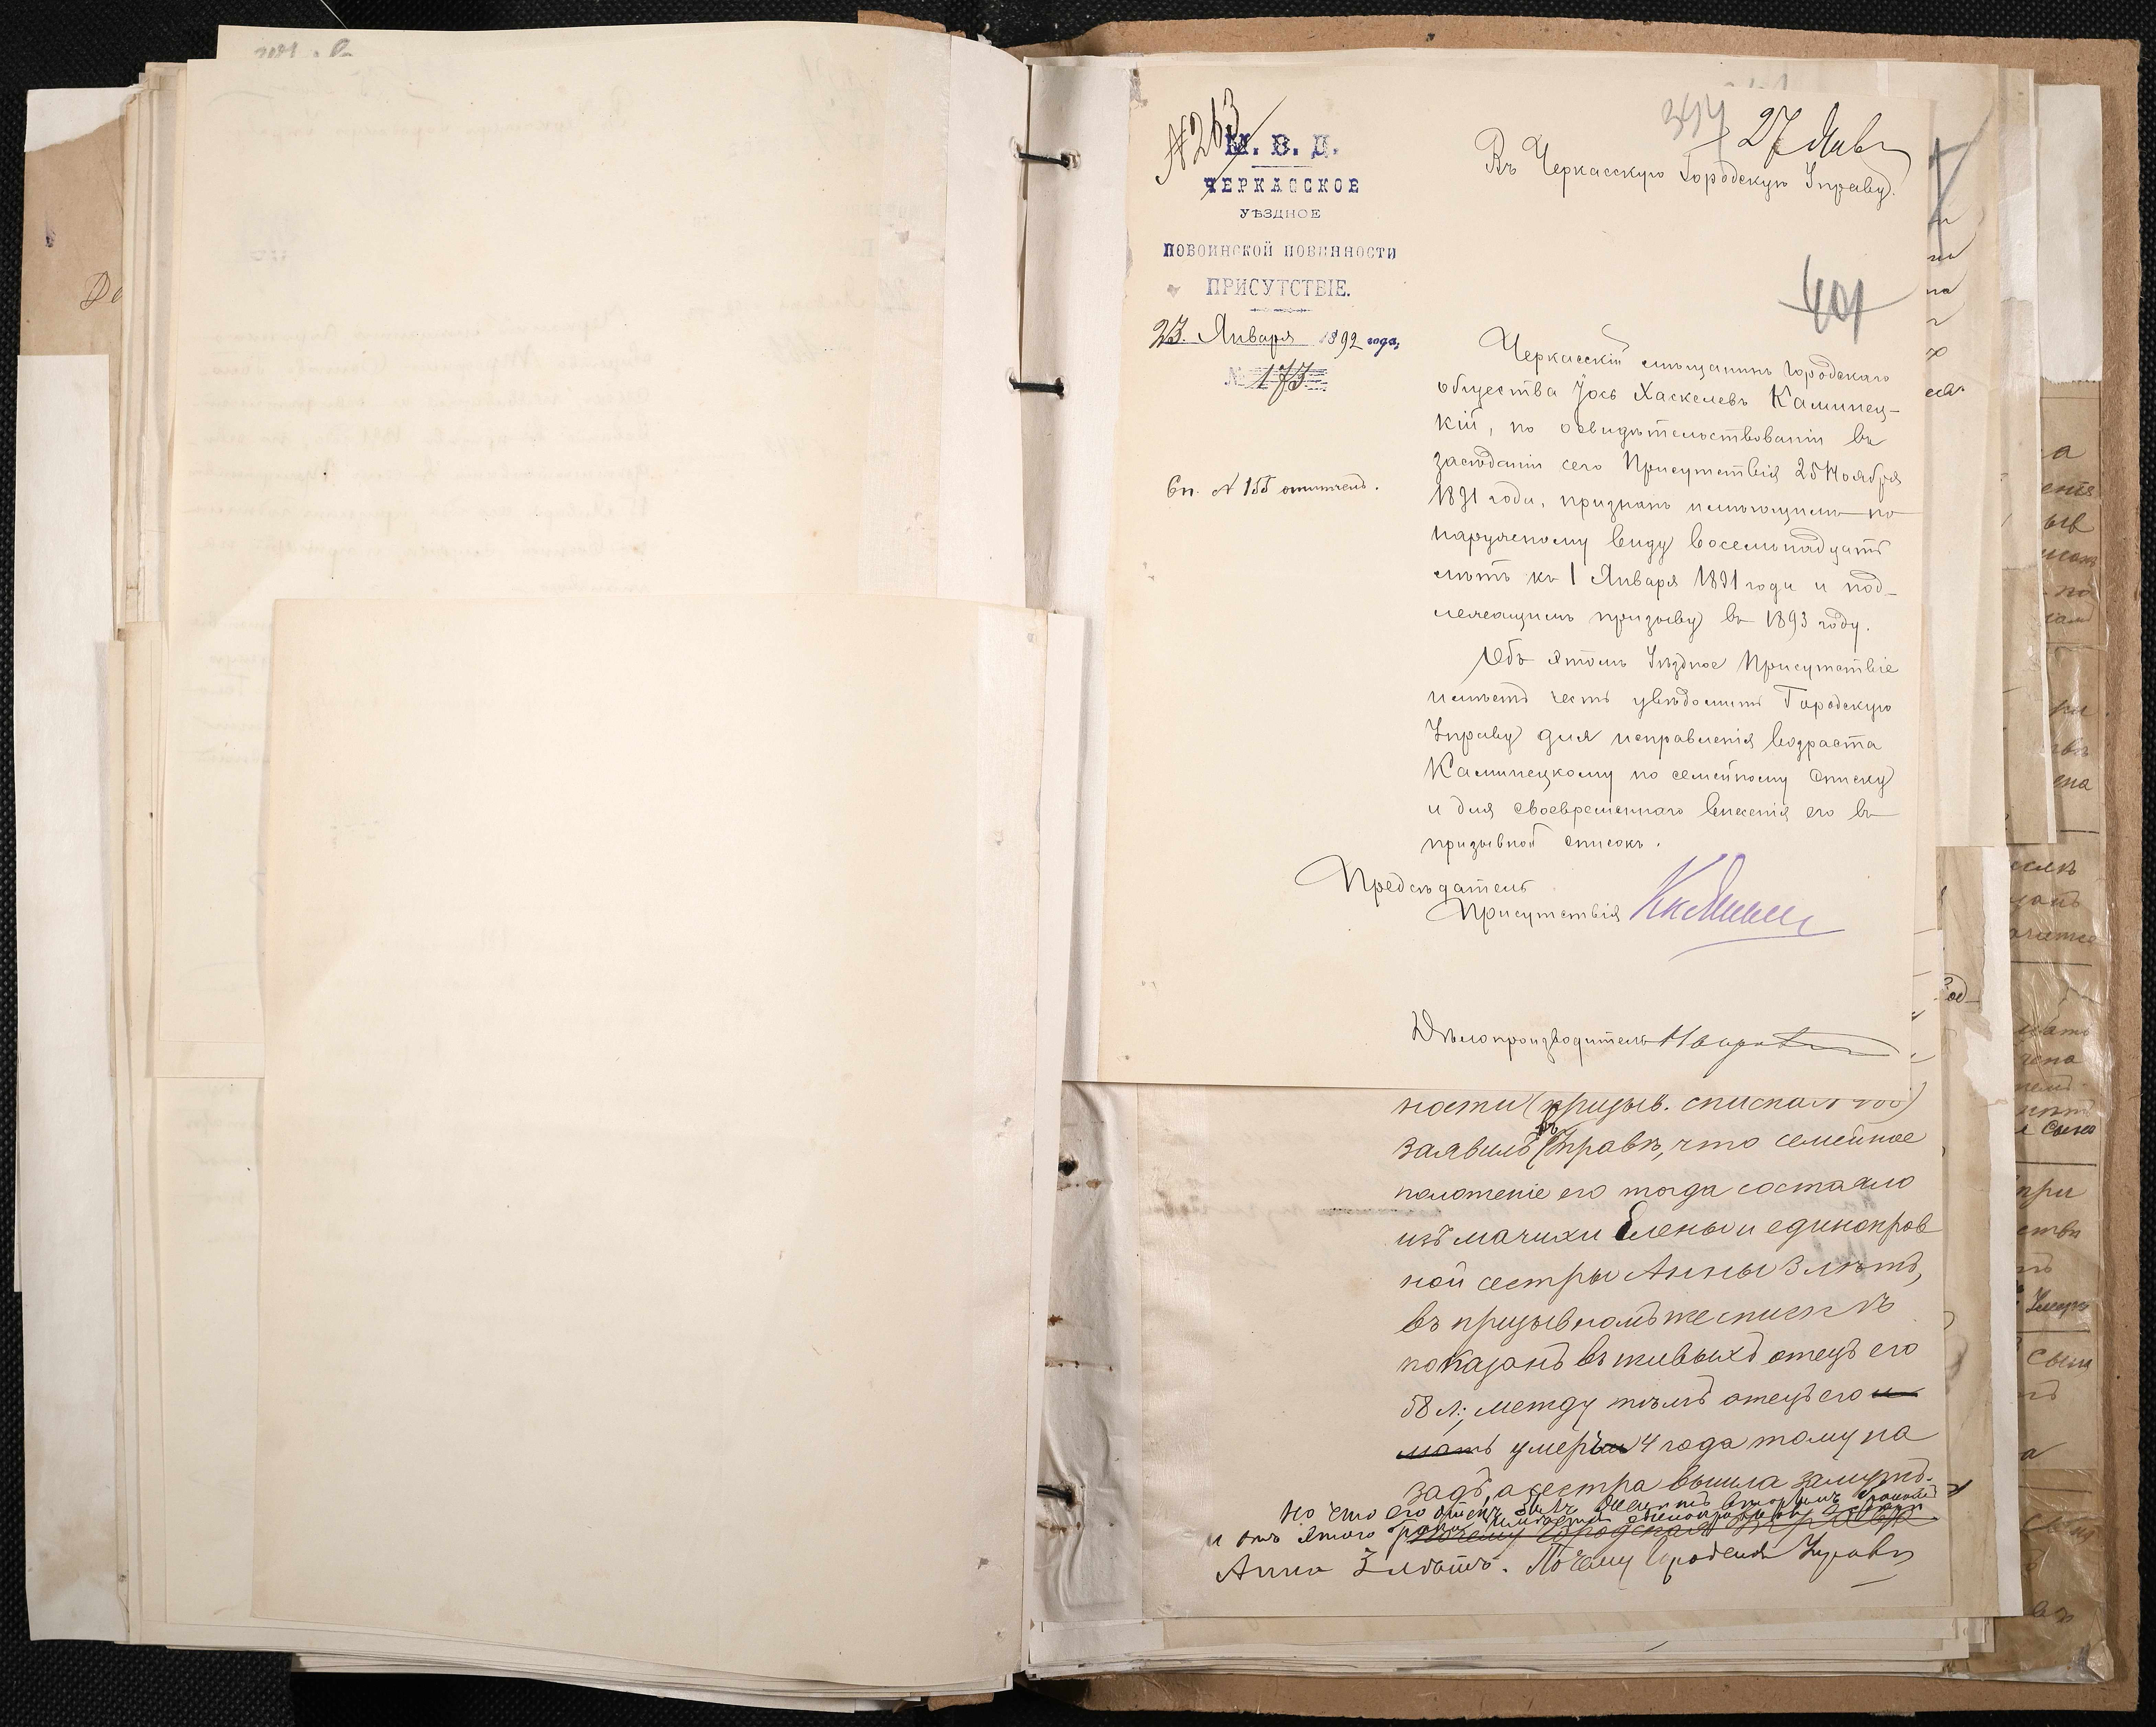 № 263
27 Янв
344
М. В. Д.
ЧЕРКАССКОЕ
УѢЗДНОЕ
ПОВОИНСКОЙ ПОВИННОСТИ
ПРИСУТСТВІЕ.
23. Января 1892 года,
№ 173
Сп. № 155 отмѣчено.
Въ Черкасскую Городскую Управу.
401
Черкасскій мѣщанинъ городскаго
общества Іось Хаскелевъ Каминец-
кій, по освидѣтельствованіи въ
засѣданіи сего Присутствія 25 Ноября
1891 года, признанъ имѣющимъ по
наружному виду восемьнадцать
лѣтъ къ 1 Января 1891 года и под-
лежащимъ призыву въ 1893 году.
Объ этомъ Уѣздное Присутствіе
имѣетъ честь увѣдомить Городскую
Управу для исправленія возраста
Каминецкому по семейному списку
и для своевременнаго внесенія его въ
призывной списокъ.
Предсѣдатель
Присутствія
Дѣлопроизводитель
ности (призыв. списка №
заявилъ Управѣ, что семейное
положеніе его тогда состояло
изъ мачихи Елены и единокров
ной сестры Анны 3 лѣтъ,
въ призывномъ же спискѣ
показанъ въ живыхъ отецъ его
58 л.; между тѣмъ отецъ его и
мать умеръ 4 года тому на
задъ, а сестра вышла замужъ.
но что его отецъ былъ женатъ вторымъ бракомъ
и отъ этого брака имѣется единокровная сестра
Анна 3 лѣтъ. Почему Городская Управа